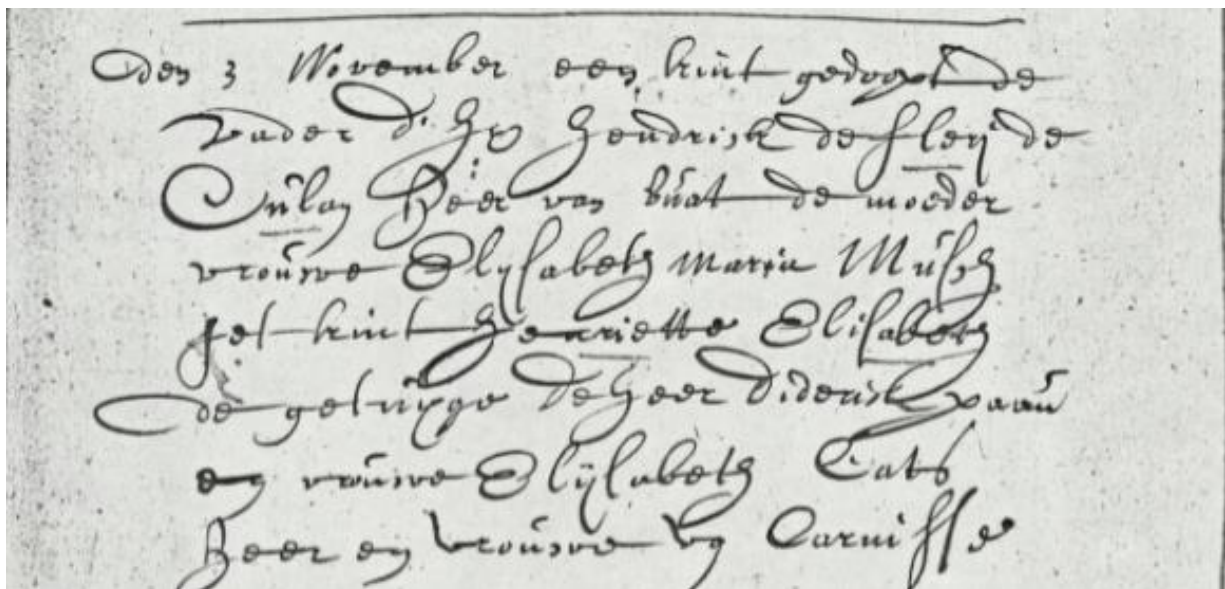 den 3 November een kint gedoopt de
Vader d' Hr Hendrick de Fleij de
Culan Heer van buat de moeder
vrouwe Elijsabeth maria Musch
het kint Henriette Elisabeth
de getuijge de heer diderick paau
en vrouwe Elijsabeth Cats
Heer en vrouwe vn Carnisse